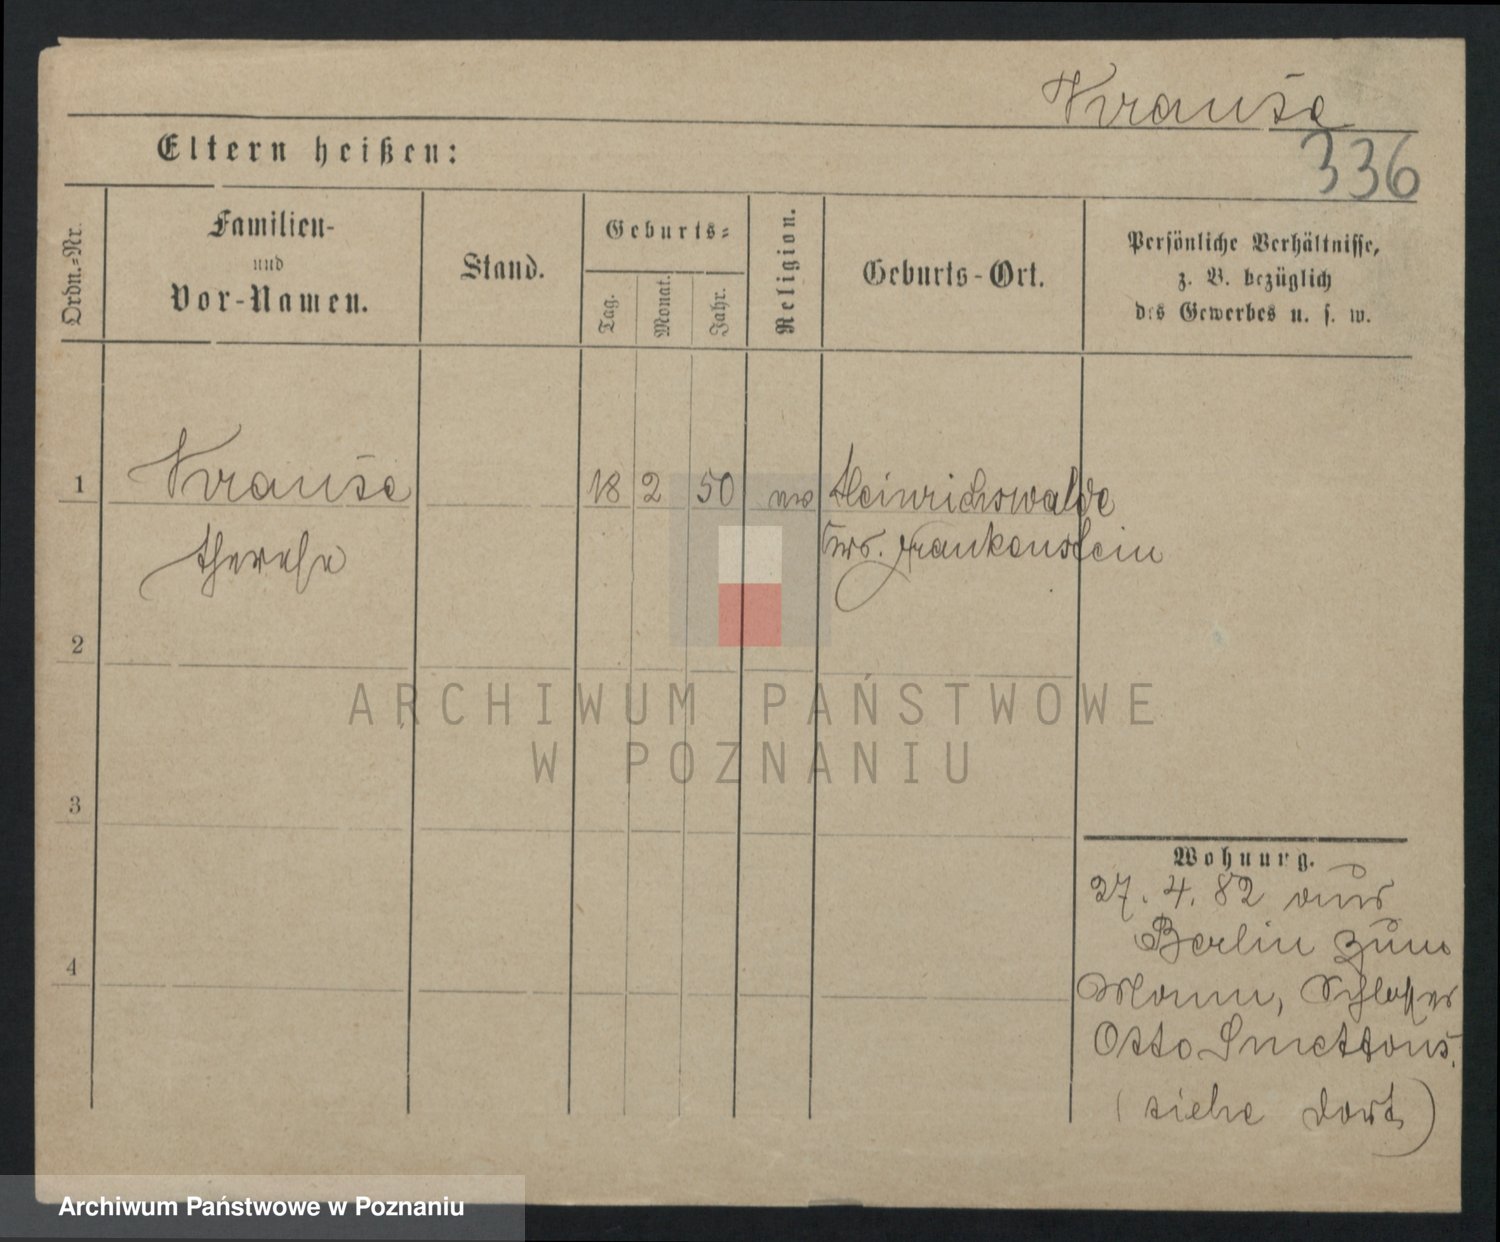 Krause
336
Eltern heißen:
Ordn.-Nr.
Familien-
und
Vor-Namen.
Stand.
Geburts-
Tag.
Monat.
Jahr.
Religion.
Geburts-Ort.
Persönliche Verhältnisse,
z. B. bezüglich
des Gewerbes u. s. w.
1
Krause
18 2 50
Heinrichswalde
therese
Krs. Frankenstein
2
ARCHIWUM PAŃSTWOWE
W POZNANIU
3
Wohnung.
27. 4. 82 aus
Berlin zum
4
Mann, Schlosser
Otto
(siehe dort)
Archiwum Państwowe w Poznaniu